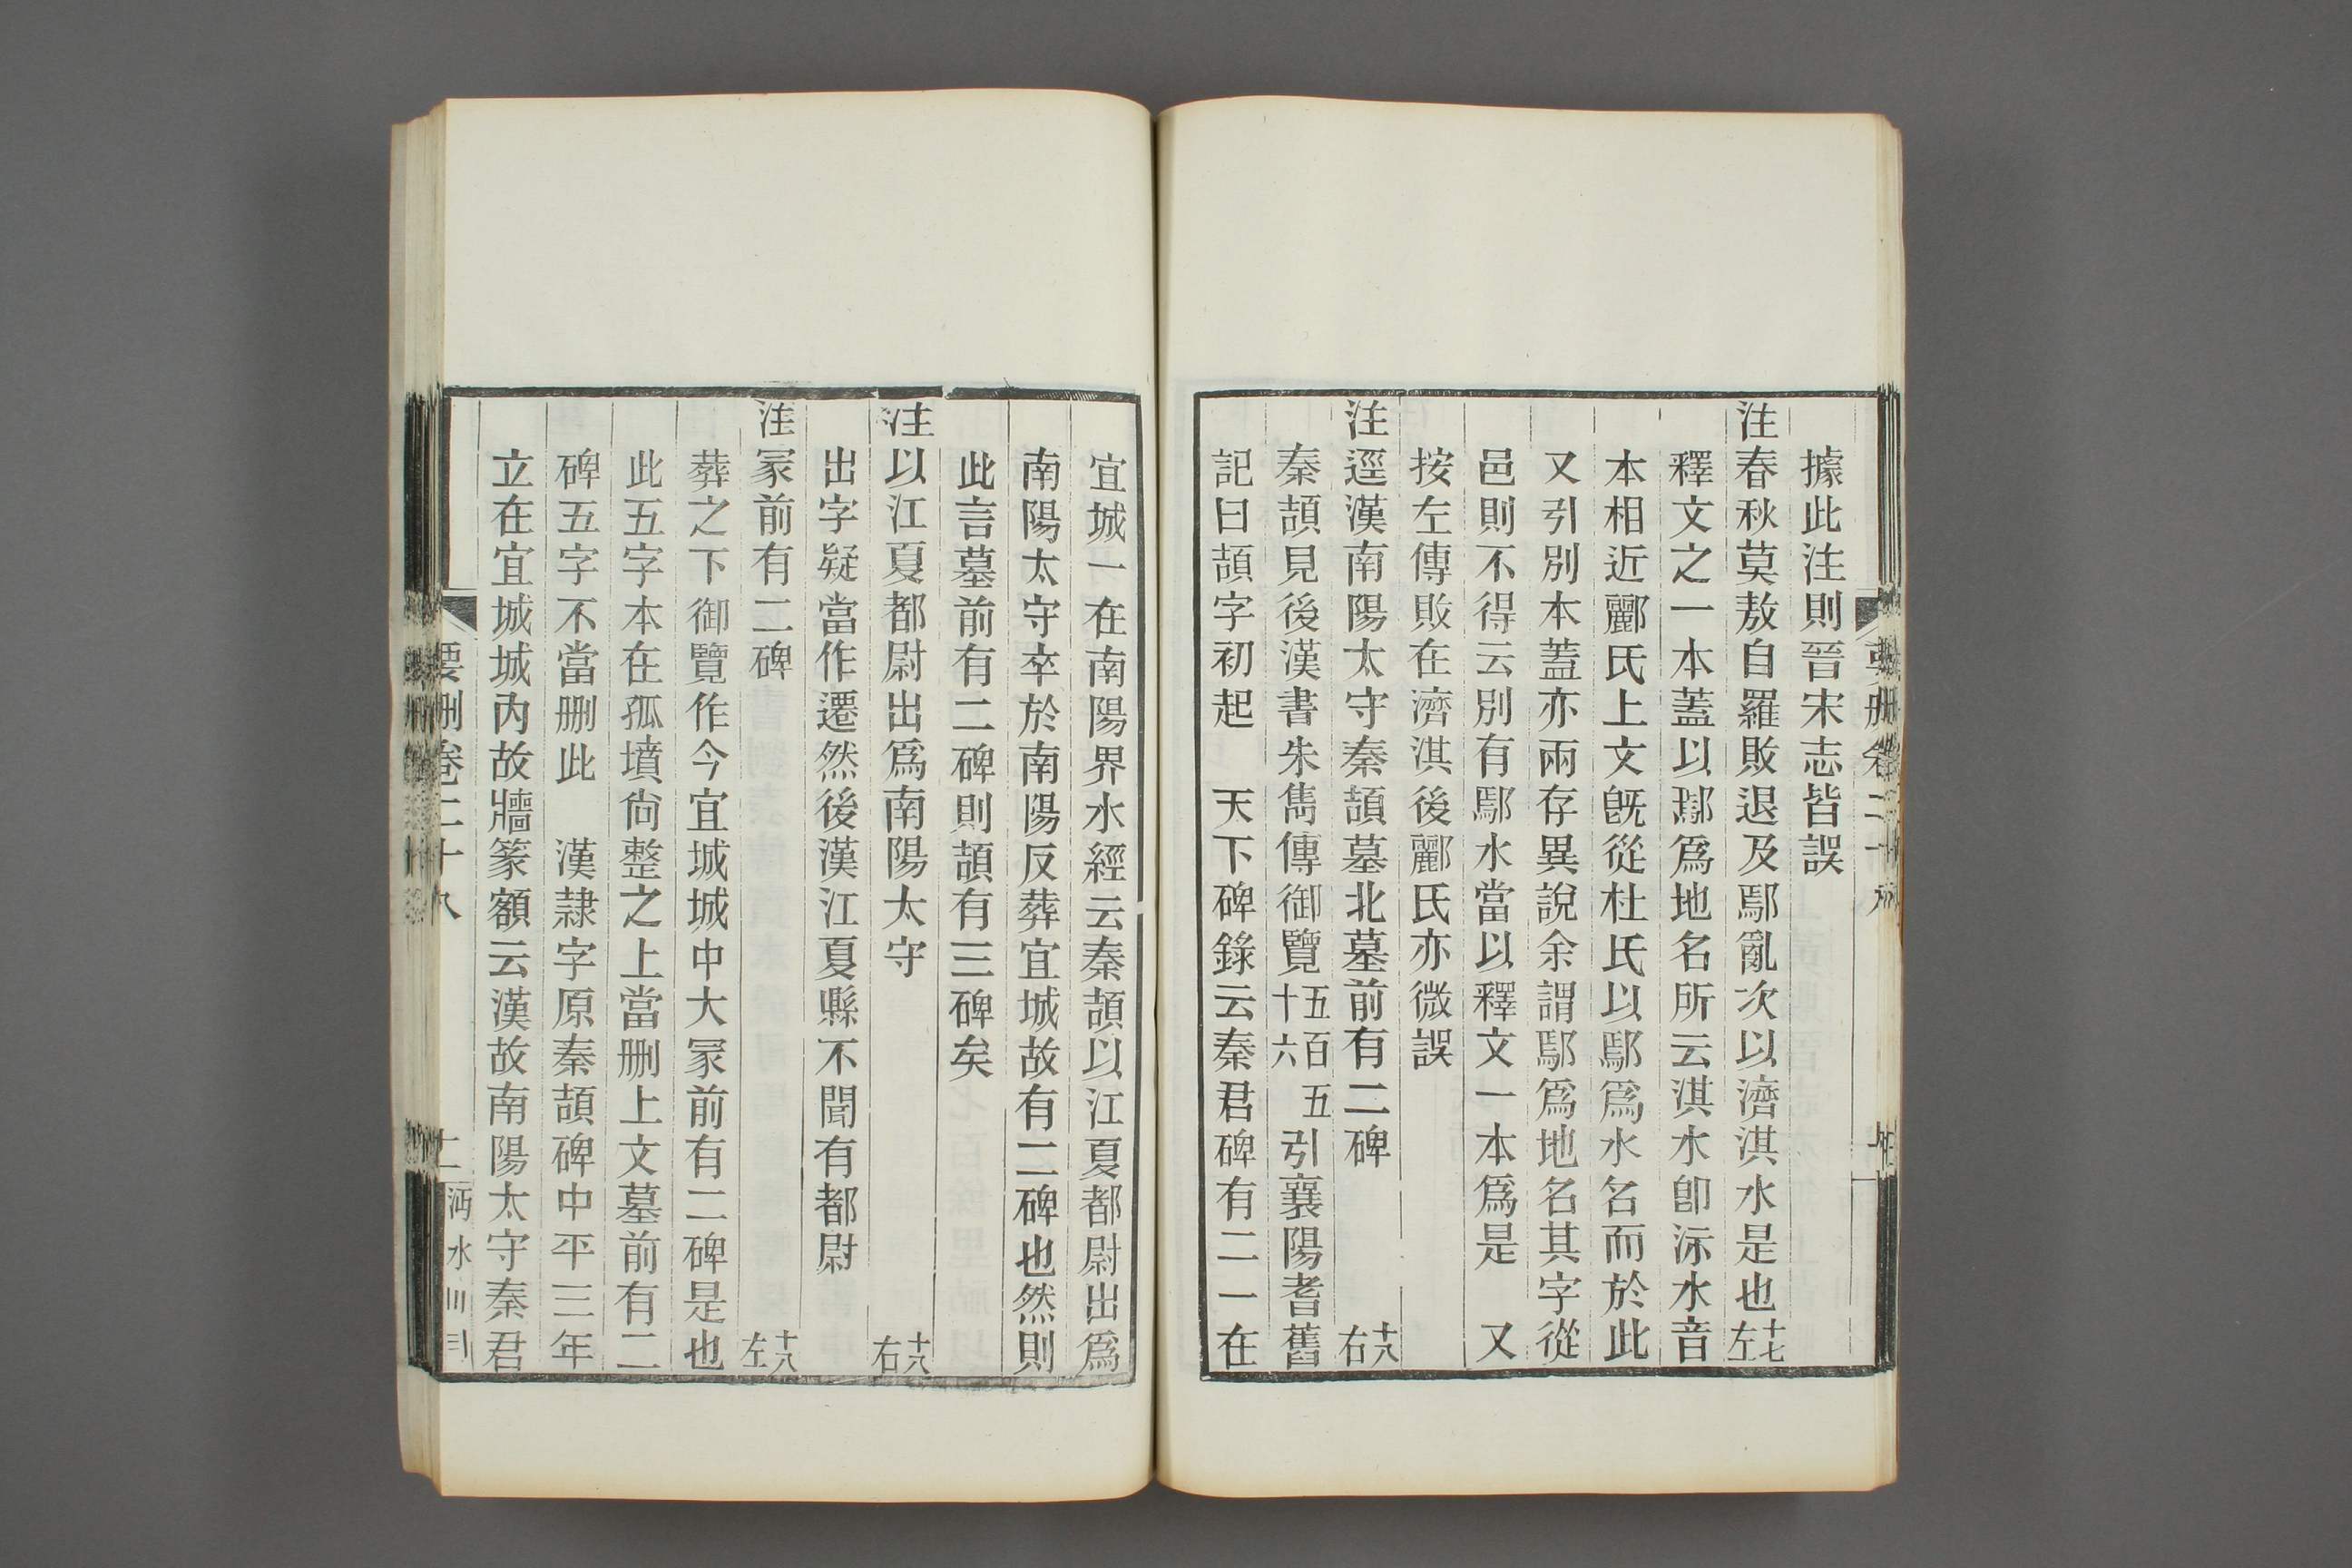 據此注則晉宋志皆誤
注春秋莫敖自羅敗退及鄢亂次以濟淇水是也十七左
釋文之一本蓋以鄢爲地名所云淇水卽沶水音
本相近酈氏上文旣從杜氏以鄢爲水名而於此
又引別本蓋亦兩存異說余謂鄢爲地名其字從
邑則不得云別有鄢水當以釋文一本爲是　又
按左傳敗在濟淇後酈氏亦微誤
注逕漢南陽太守秦頡墓北墓前有二碑十八右
秦頡見後漢書朱儁傳御覽五百五十六引襄陽耆舊
記曰頡字初起　天下碑錄云秦君碑有二一在
宜城一在南陽界水經云秦頡以江夏都尉出爲
南陽太守卒於南陽反葬宜城故有二碑也然則
此言墓前有二碑則頡有三碑矣
注以江夏都尉出爲南陽太守十八右
出字疑當作遷然後漢江夏縣不聞有都尉
注冢前有二碑十八左
葬之下御覽作今宜城城中大冢前有二碑是也
此五字本在孤墳尙整之上當刪上文墓前有二
碑五字不當刪此　漢隷字原秦頡碑中平三年
立在宜城城內故牆篆額云漢故南陽太守秦君
要刪卷二十八
沔水